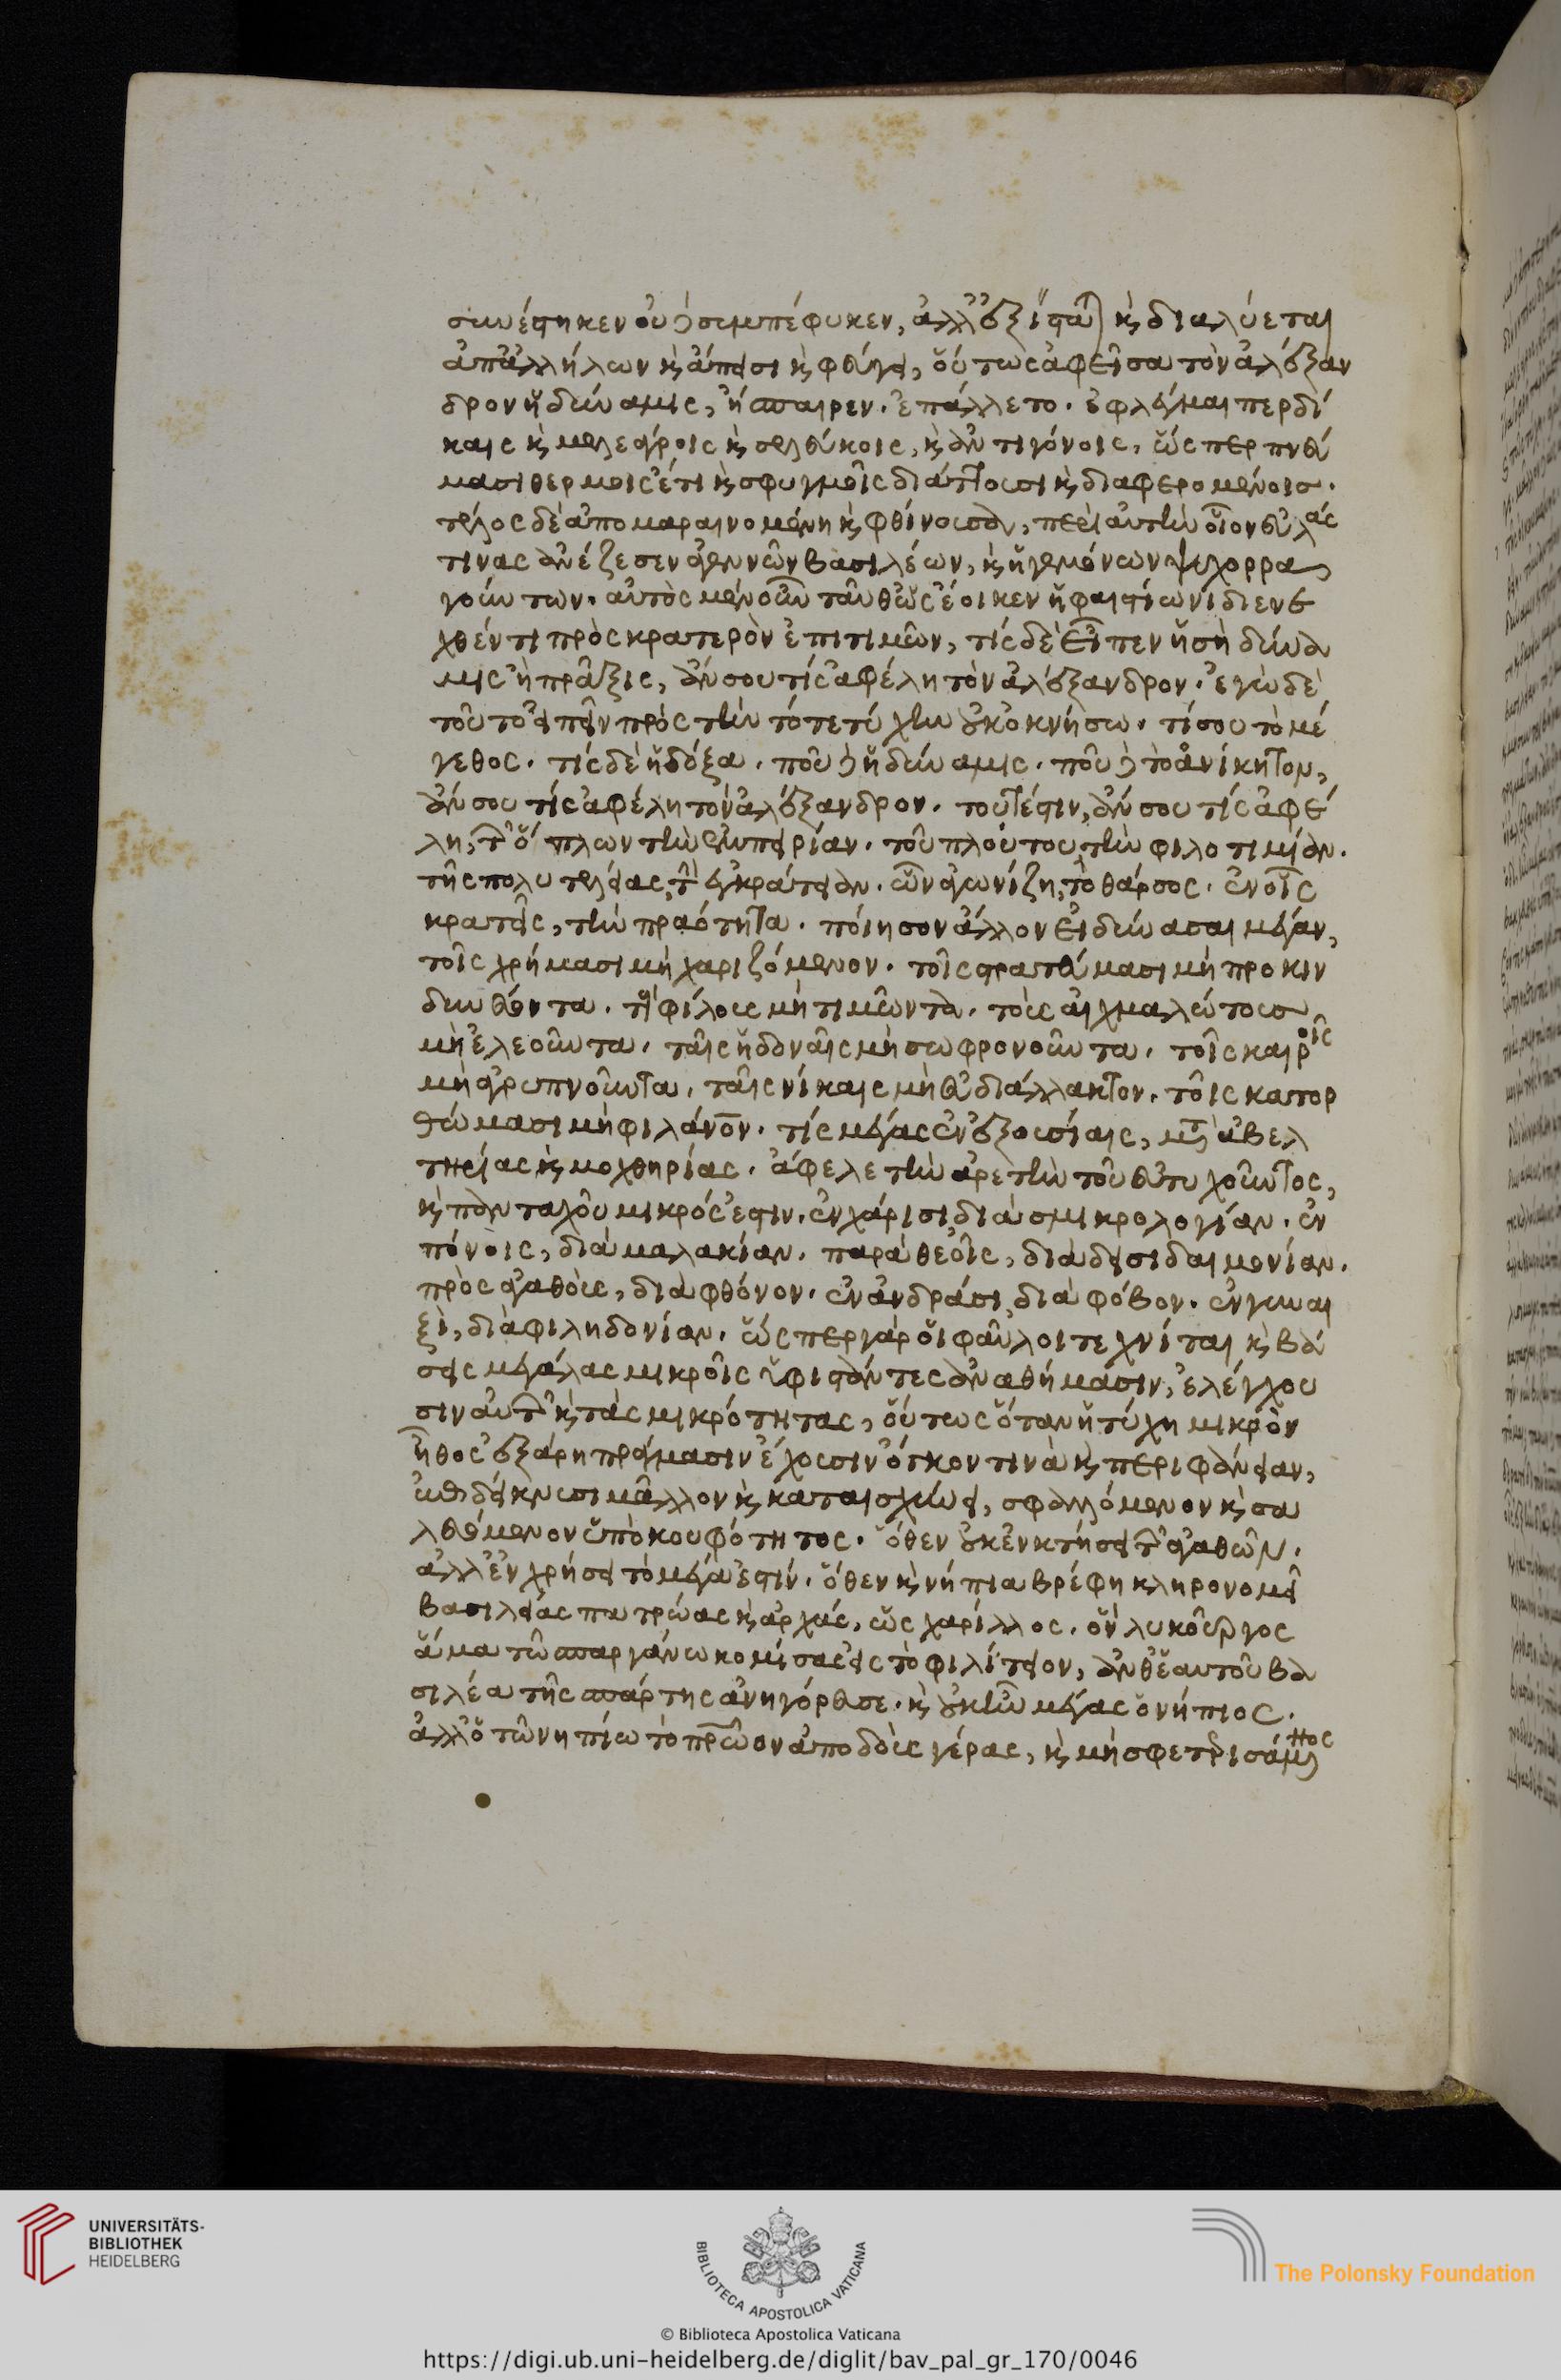 συνέστηκεν οὐδὲ συμπέφυκεν, ἀλλ' ἐξίσταται καὶ διαλύεται
ἀπ' ἀλλήλων καὶ ἄπεισι καὶ φθίνει, οὕτως ἀφεῖσα τὸν ἀλέξαν
δρον ἡ δύναμις, ἤσπαιρεν. ἐπάλλετο. ἐφλέγμαι περδί
καις καὶ μελεάγροις καὶ σελεύκοις, καὶ ἀντιγόνοις, ὥσπερ πνεύ
μασι θερμοῖς ἔτι καὶ σφυγμοῖς διάττουσι καὶ διαφερομένοις.
τέλος δὲ ἀπομαραινομένη καὶ φθίνουσα, περὶ αὐτὴν οἷον εὐλάς
τινας ἀνέζεσεν ἀγεννῶν βασιλέων, καὶ ἡγεμόνων ψυχορρα
γούντων. αὐτὸς μὲν οὖν ταῦθ' ὡς ἔοικεν ἡφαιστίωνι διενε
χθέντι πρὸς κρατερὸν ἐπιτιμῶν, τίς δὲ εἶπεν ἡ σὴ δύνα
μις ἢ πρᾶξις, ἄν σου τίς ἀφέλη τὸν ἀλέξανδρον. ἐγὼ δὲ
τοῦτο εἰπεῖν πρὸς τὴν τότε τύχην οὐκ ὀκνήσω. τί σου τὸ μέ
γεθος. τίς δὲ ἡ δόξα. ποῦ δὲ ἡ δύναμις. ποῦ δὲ τὸ ἀνίκητον,
ἄν σου τίς ἀφέλη τὸν ἀλέξανδρον. τουτέστιν, ἄν σου τίς ἀφέ
λη, τῶν ὅπλων τὴν ἐμπειρίαν. τοῦ πλούτου, τὴν φιλοτιμίαν.
τῆς πολυτελείας, τὴν ἐγκράτειαν. ὧν ἀγωνίζη, τὸ θάρσος. ἐν οἷς
κρατεῖς, τὴν πραότητα. ποίησον ἄλλον εἰ δύνασαι μέγαν,
τοῖς χρήμασι μὴ χαριζόμενον. τοῖς στρατεύμασι μὴ προκιν
δυνεύοντα. τοὺς φίλους μὴ τιμῶντα. τοὺς αἰχμαλώτους
μὴ ἐλεοῦντα. ταῖς ἡδοναῖς μὴ σωφρονοῦντα. τοῖς καιροῖς
μὴ ἀγρυπνοῦντα. ταῖς νίκαις μὴ εὐδιάλλακτον. τοῖς κατορ
θώμασι μὴ φιλάνον. τίς μέγας ἐν ἐξουσίαις, μετὰ ἀβελ
τηρίας καὶ μοχθηρίας. ἄφελε τὴν ἀρετὴν τοῦ εὐτυχοῦντος,
καὶ πανταχοῦ μικρός ἐστιν. ἐν χάρισι, διὰ σμικρολογίαν. ἐν
πόνοις, διὰ μαλακίαν. παρὰ θεοῖς, διὰ δεισιδαιμονίαν.
πρὸς ἀγαθοὺς, διὰ φθόνον. ἐν ἀνδράσι, διὰ φόβον. ἐν γυναι
ξὶ, διὰ φιληδονίαν. ὥσπερ γὰρ οἱ φαῦλοι τεχνίται καὶ βά
σεις μεγάλας μικροῖς ὑφιστάντες ἀναθήμασιν, ἐλέγχου
σιν αὐτῶν καὶ τὰς μικρότητας, οὕτως ὅταν ἡ τύχη μικρὸν
ἦθος ἐξάρη πράγμασιν ἔχουσιν ὄγκον τινὰ καὶ περιφάνειαν,
ἐπιδείκνυσι μᾶλλον καὶ καταισχύνει, σφαλλόμενον καὶ σα
λευόμενον ὑπὸ κουφότητος. ὅθεν οὐκ ἐν κτήσει τῶν ἀγαθῶν.
ἀλλ' ἐν χρήσει τὸ μέγα ἐστίν. ὅθεν καὶ νήπια βρέφη κληρονομεῖ
βασιλείας πατρώας καὶ ἀρχάς, ὡς χαρίλλος. ὃν λυκοῦργος
ἅμα τῶ σπαργάνω κομίσας εἰς τὸ φιλίτειον, ἀνθ' ἑαυτοῦ βα
σιλέα τῆς σπάρτης ἀνηγόρευσε. καὶ οὐκ ἦν μέγας ὁ νήπιος.
ἀλλ' ὁ τῶ νηπίω τὸ πρῶον ἀποδοὺς γέρας, καὶ μὴ σφετερισάμενος
UNIVERSITÄTS-
BIBLIOTHEK
HEIDELBERG
BIBLIOTECA APOSTOLICA VATICANA
The Polonsky Foundation
© Biblioteca Apostolica Vaticana
https://digi.ub.uni-heidelberg.de/diglit/bav_pal_gr_170/0046